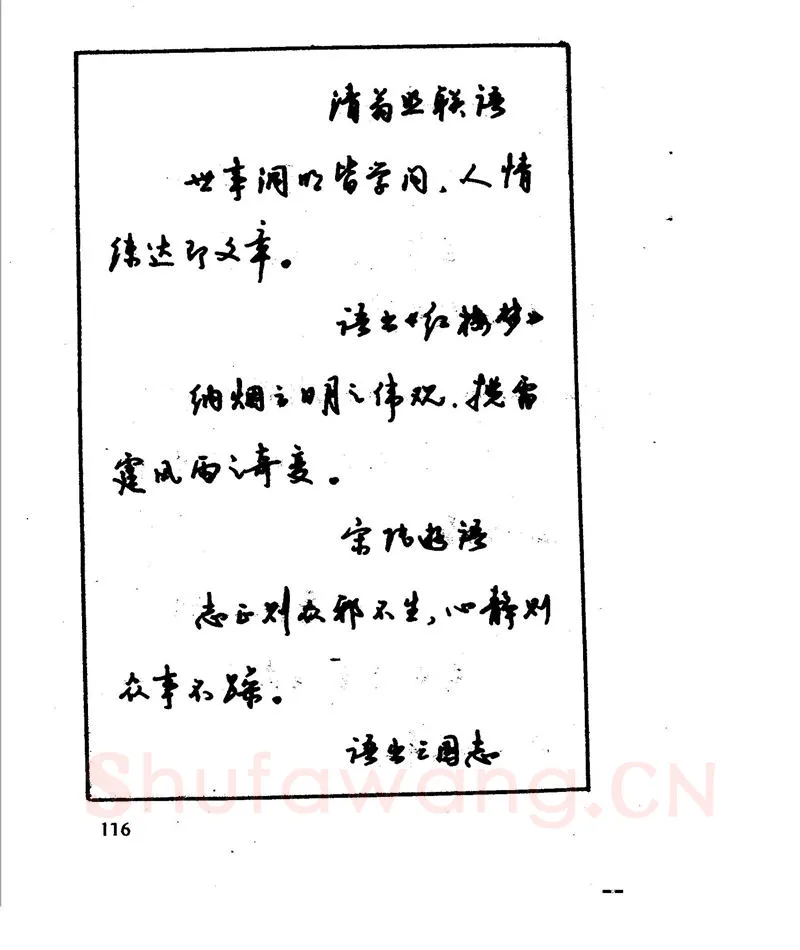 清芶照联语
世事洞明皆学问,人情
练达即文章。
语出《红楼梦》
纳烟云日月之伟观,揽雷
霆风雨之奇变。
宋陆游语
志正则众邪不生,心静则
众事不躁。
语出三国志
Shufawang.CN
116